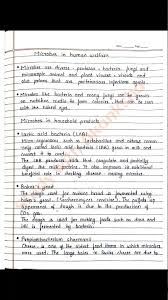 Microbes in human welfare
• Microbes are diverse - protozoa, bacteria, fungi and
microscopic animal and plant viruses, viroids and
also prions that are proteinacious infectious agents.
• Microbes like bacteria and many fungi can be grown
on nutritive media to form colonies, that can be seen
with the naked eyes.
Microbes in household products
• Lactic acid bacteria (LAB)
Micro organisms such as Lactobacillus and others commonly
called lactic acid bacteria (LAB) grow in milk and
convert it to curd.
The LAB produces acids that coagulate and partially
digest the milk proteins. It also improves its nutritional
role in checking disease causing microbes.
• Baker's yeast
The dough used for making bread is fermented using
baker's yeast (Saccharomyces cerevisiae). The puffed up
appearance of dough is due to the production of
CO2 gas.
The dough is used for making foods such as dosa and
idli is fermented by bacteria.
• Propionibacterium sharmanii
Cheese is one of the oldest food items in which microbes
were used. The large holes in Swiss cheese are due to